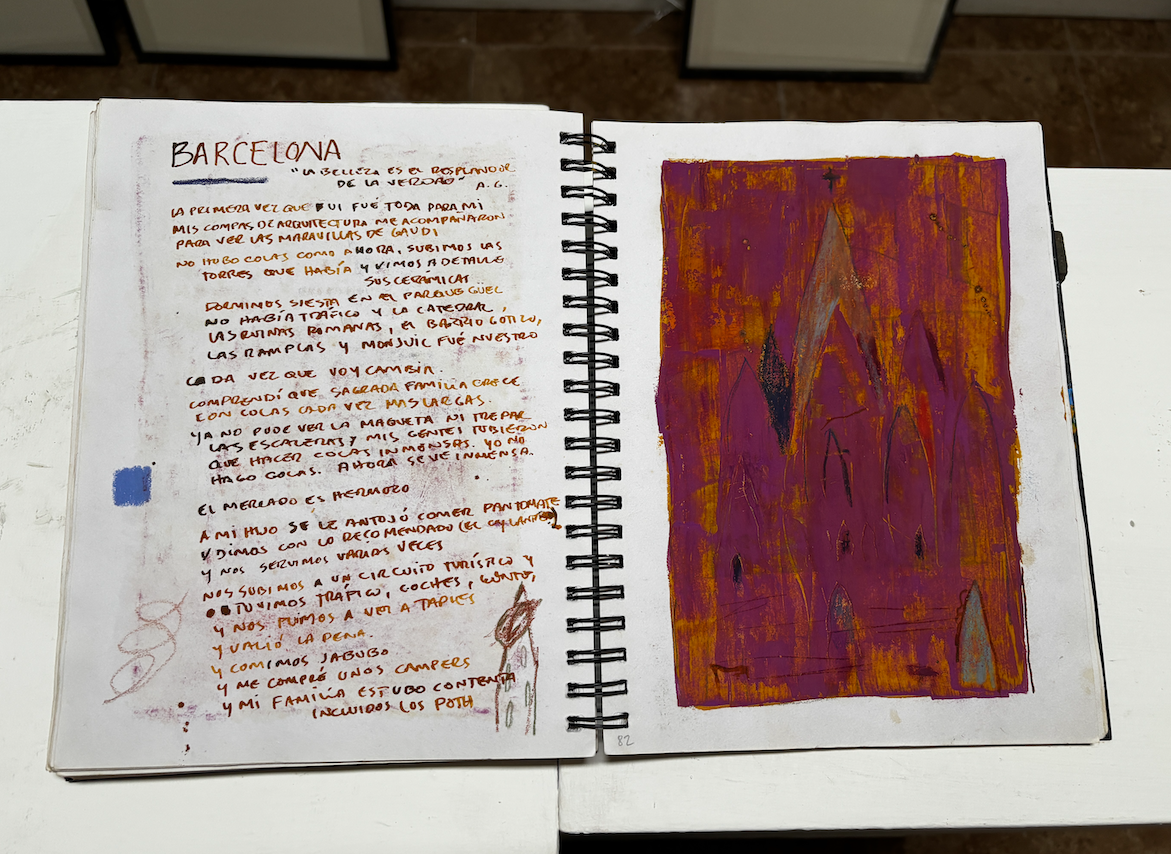 BARCELONA
"LA BELLEZA ES EL RESPLANDOR
DE LA VERDAD" A. G.
LA PRIMERA VEZ QUE FUI FUÉ TODA PARA MI
MIS COMPAS DE ARQUITECTURA ME ACOMPAÑARON
PARA VER LAS MARAVILLAS DE GAUDI
NO HUBO COLAS COMO AHORA, SUBIMOS LAS
TORRES QUE HABÍA Y VIMOS A DETALLE
SUS CERÁMICAS
DORMIMOS SIESTA EN EL PARQUE GÜEL
NO HABÍA TRÁFICO Y LA CATEDRAL,
LAS RUINAS ROMANAS, EL BARRIO GOTICO,
LAS RAMPLAS Y MONJUIC FUÉ NUESTRO
CADA VEZ QUE VOY CAMBIA.
COMPRENDÍ QUE SAGRADA FAMILIA CRECE
CON COLAS CADA VEZ MAS LARGAS.
YA NO PUDE VER LA MAQUETA NI TREPAR
LAS ESCALERAS Y MIS GENTES TUBIERON
QUE HACER COLAS INMENSAS. YO NO
HAGO COLAS. AHORA SE VE INMENSA.
EL MERCADO ES HERMOZO
A MI HIJO SE LE ANTOJÓ COMER PANTOMATE
Y DIMOS CON LO RECOMENDADO (EL
Y NOS SERVIMOS VARIAS VECES
NOS SUBIMOS A UN CIRCUITO TURÍSTICO Y
TUVIMOS TRÁFICO, COCHES, GENTE,
Y NOS FUIMOS A VER A TAPIES
Y VALIÓ LA PENA.
Y COMIMOS JABUBO
Y ME COMPRÉ UNOS CAMPERS
Y MI FAMILIA ESTUBO CONTENTA
INCLUIDOS LOS POTH
82